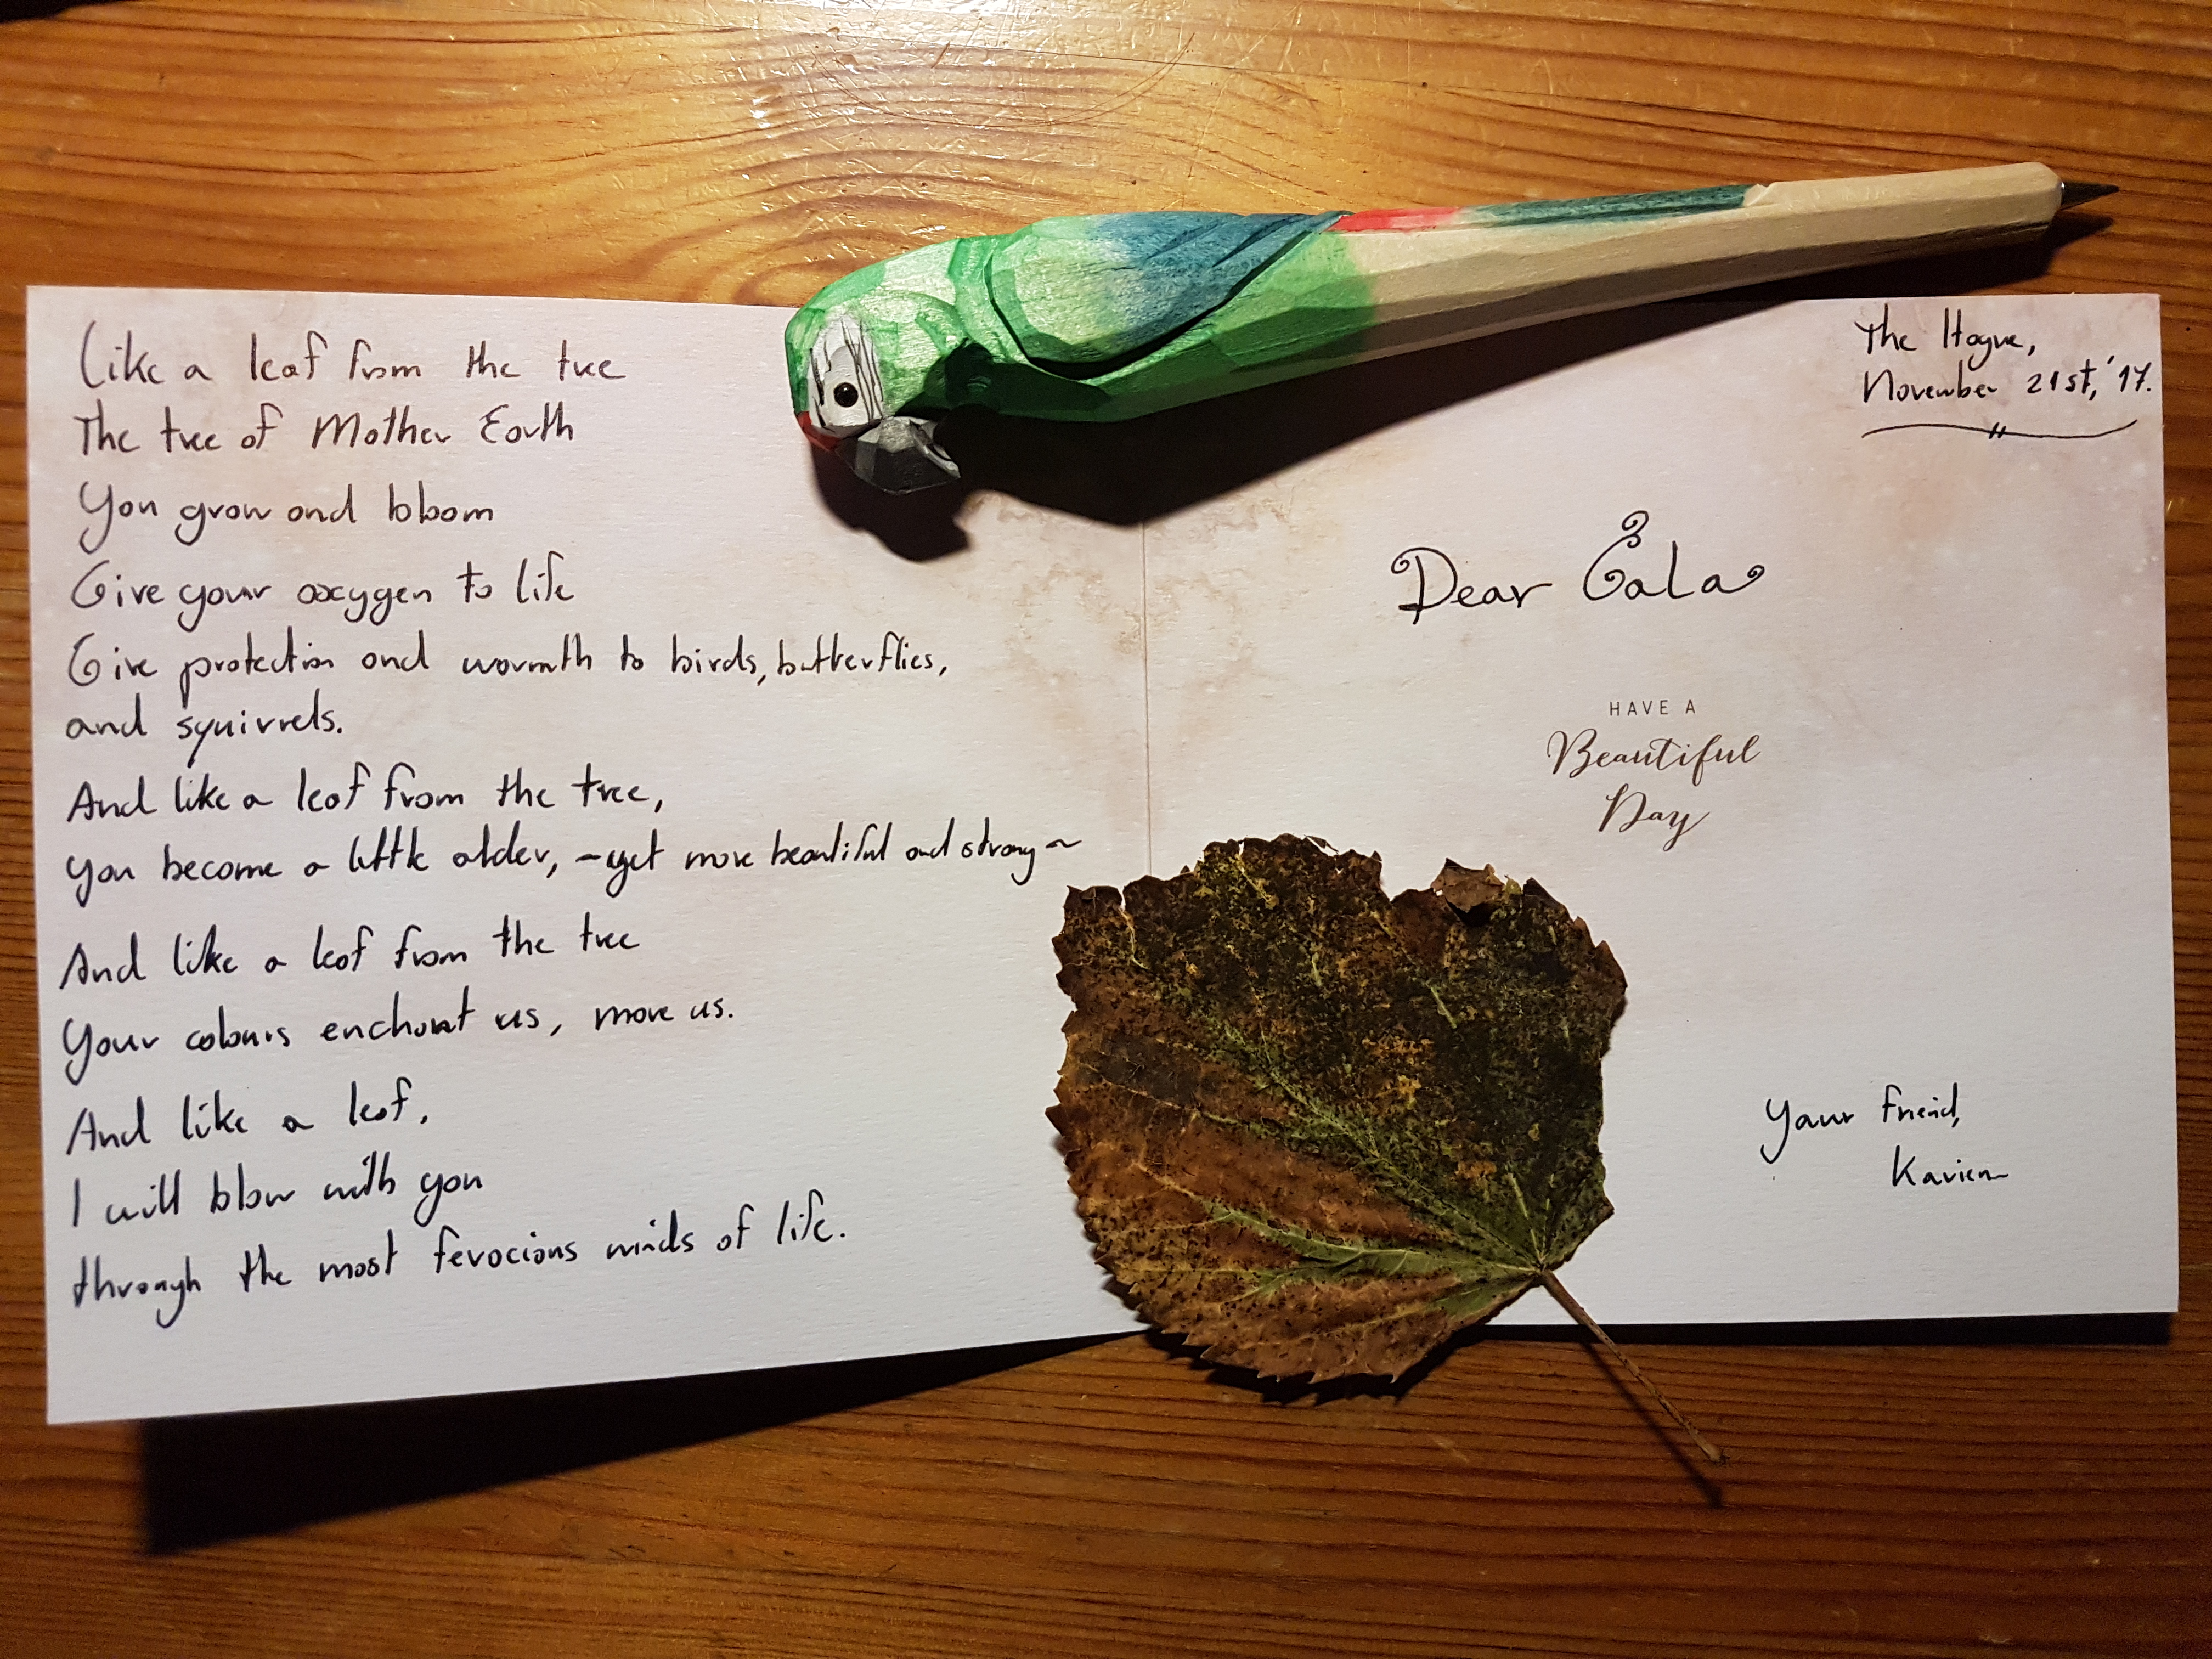 Like a leaf from the tree
The tree of Mother Earth
You grow and bloom
Give your oxygen to life
Give protection and warmth to birds, butterflies,
and squirrels.
And like a leaf from the tree,
you become a little older, ~yet more beautiful and strong~
And like a leaf from the tree
Your colours enchant us, move us.
And like a leaf,
I will blow with you
through the most ferocious winds of life.
The Hague,
November 21st, '17.
Dear Gala
HAVE A
Beautiful
Day
Your friend,
Karien